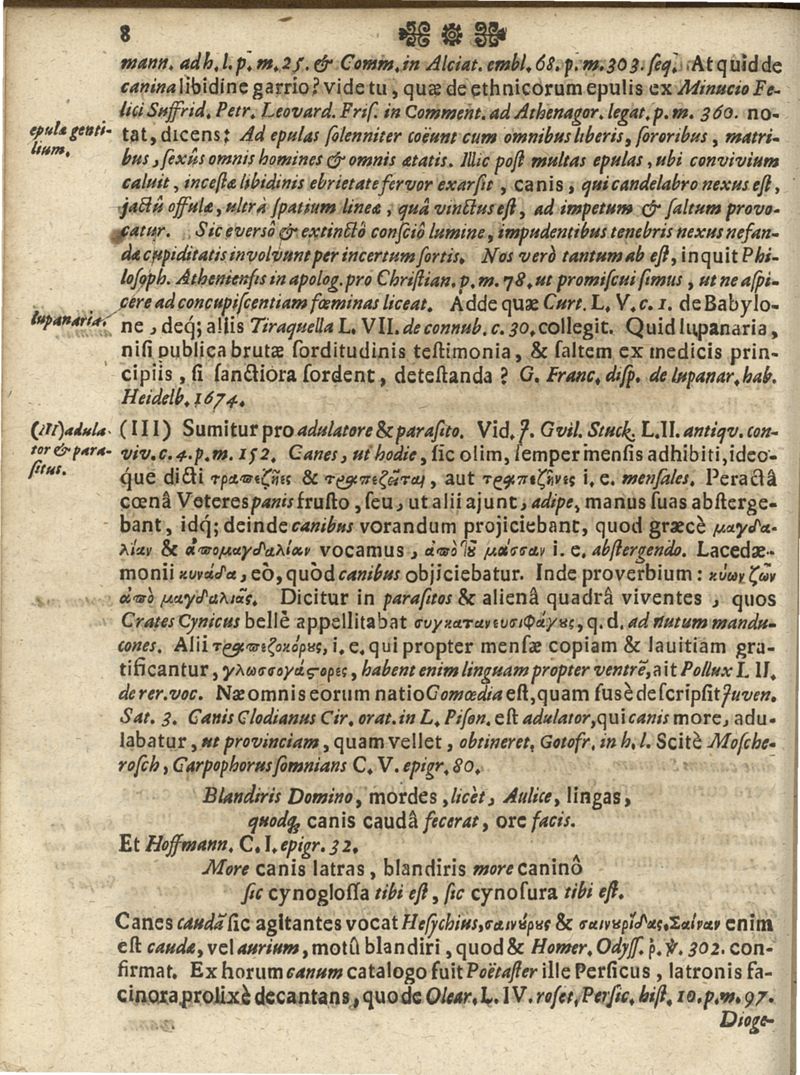 8
mann. ad h. l. p. m. 25. & Comm. in Alciat. embl. 68. p. m. 303. seq. At quid de
canina libidine garrio? vide tu, quæ de ethnicorum epulis ex Minucio Fe-
lici Suffrid. Petr. Leovard. Fris. in Comment. ad Athenagor. legat. p. m. 360. no-
epulæ genti-
lium.
tat, dicens: Ad epulas solenniter coëunt cum omnibus liberis, sororibus, matri-
bus, sexûs omnis homines & omnis ætatis. Illic post multas epulas, ubi convivium
caluit, incestæ libidinis ebrietate fervor exarsit, canis, qui candelabro nexus est,
jactû offulæ, ultra spatium lineæ, quâ vinctus est, ad impetum & saltum provo-
catur. Sic everso & extincto conscio lumine, impudentibus tenebris nexus nefan-
dæ cupiditatis involvunt per incertum sortis. Nos verò tantum ab est, inquit Phi-
losoph. Atheniensis in apolog. pro Christian. p. m. 78. ut promiscui simus, ut ne aspi-
cere ad concupiscentiam fœminas liceat. Adde quæ Curt. L. V. c. 1. de Babylo-
lupanaria.
ne, deq; aliis Tiraquella L. VII. de connub. c. 30. collegit. Quid lupanaria,
nisi publica brutæ sorditudinis testimonia, & saltem ex medicis prin-
cipiis, si sanctiora sordent, detestanda? G. Franc. disp. de lupanar. hab.
Heidelb. 1674.
(III) adula-
tor & para-
situs.
(III) Sumitur pro adulatore & parasito. Vid. J. Gvil. Stuck. L. II. antiqv. con-
viv. c. 4. p. m. 152. Canes, ut hodie, sic olim, semper mensis adhibiti, ideo-
qúe dicti τραπεζῆες & τραπεζῶται, aut τραπεζῆνες i. e. mensales. Peractâ
cœnâ Veteres panis frusto, seu, ut alii ajunt, adipe, manus suas absterge-
bant, idq; deinde canibus vorandum projiciebant, quod græcè μαγδα-
λίαν & ἀπομαγδαλίαν vocamus, ἀπὸ τοῦ μάσσαν i. e. abstergendo. Lacedæ-
monii κυνάδα, eò, quòd canibus objiciebatur. Inde proverbium: κύων ζῶν
ἀπὸ μαγδαλιᾶς. Dicitur in parasitos & alienâ quadrâ viventes, quos
Crates Cynicus bellè appellitabat συγκατανευσιφάγους, q. d. ad nutum mandu-
cones. Alii τραπεζοκόρους, i. e. qui propter mensæ copiam & lauitiam gra-
tificantur, γλωσσογάστορες, habent enim linguam propter ventrẽ, ait Pollux L. II.
de rer. voc. Næ omnis eorum natio Comœdia est, quam fusè descripsit Juven.
Sat. 3. Canis Clodianus Cic. orat. in L. Pison. est adulator, qui canis more, adu-
labatur, ut provinciam, quam vellet, obtineret. Gotofr. in h. l. Scitè Mosche-
rosch, Carpophorus somnians C. V. epigr. 80.
Blandiris Domino, mordes, licèt, Aulice, lingas,
quodq; canis caudâ fecerat, ore facis.
Et Hoffmann. C. I. epigr. 32.
More canis latras, blandiris more caninô
sic cynoglossa tibi est, sic cynosura tibi est.
Canes caudã sic agitantes vocat Hesychius, σαινούρους & σαινουρίδας. Σαίναν enim
est cauda, vel aurium, motû blandiri, quod & Homer. Odyss. ῥ. ℣. 302. con-
firmat. Ex horum canum catalogo fuit Poëtaster ille Persicus, latronis fa-
cinora prolixè decantans, quo de Olear. L. IV. roset. Persic. hist. 10. p. m. 97.
Dioge-